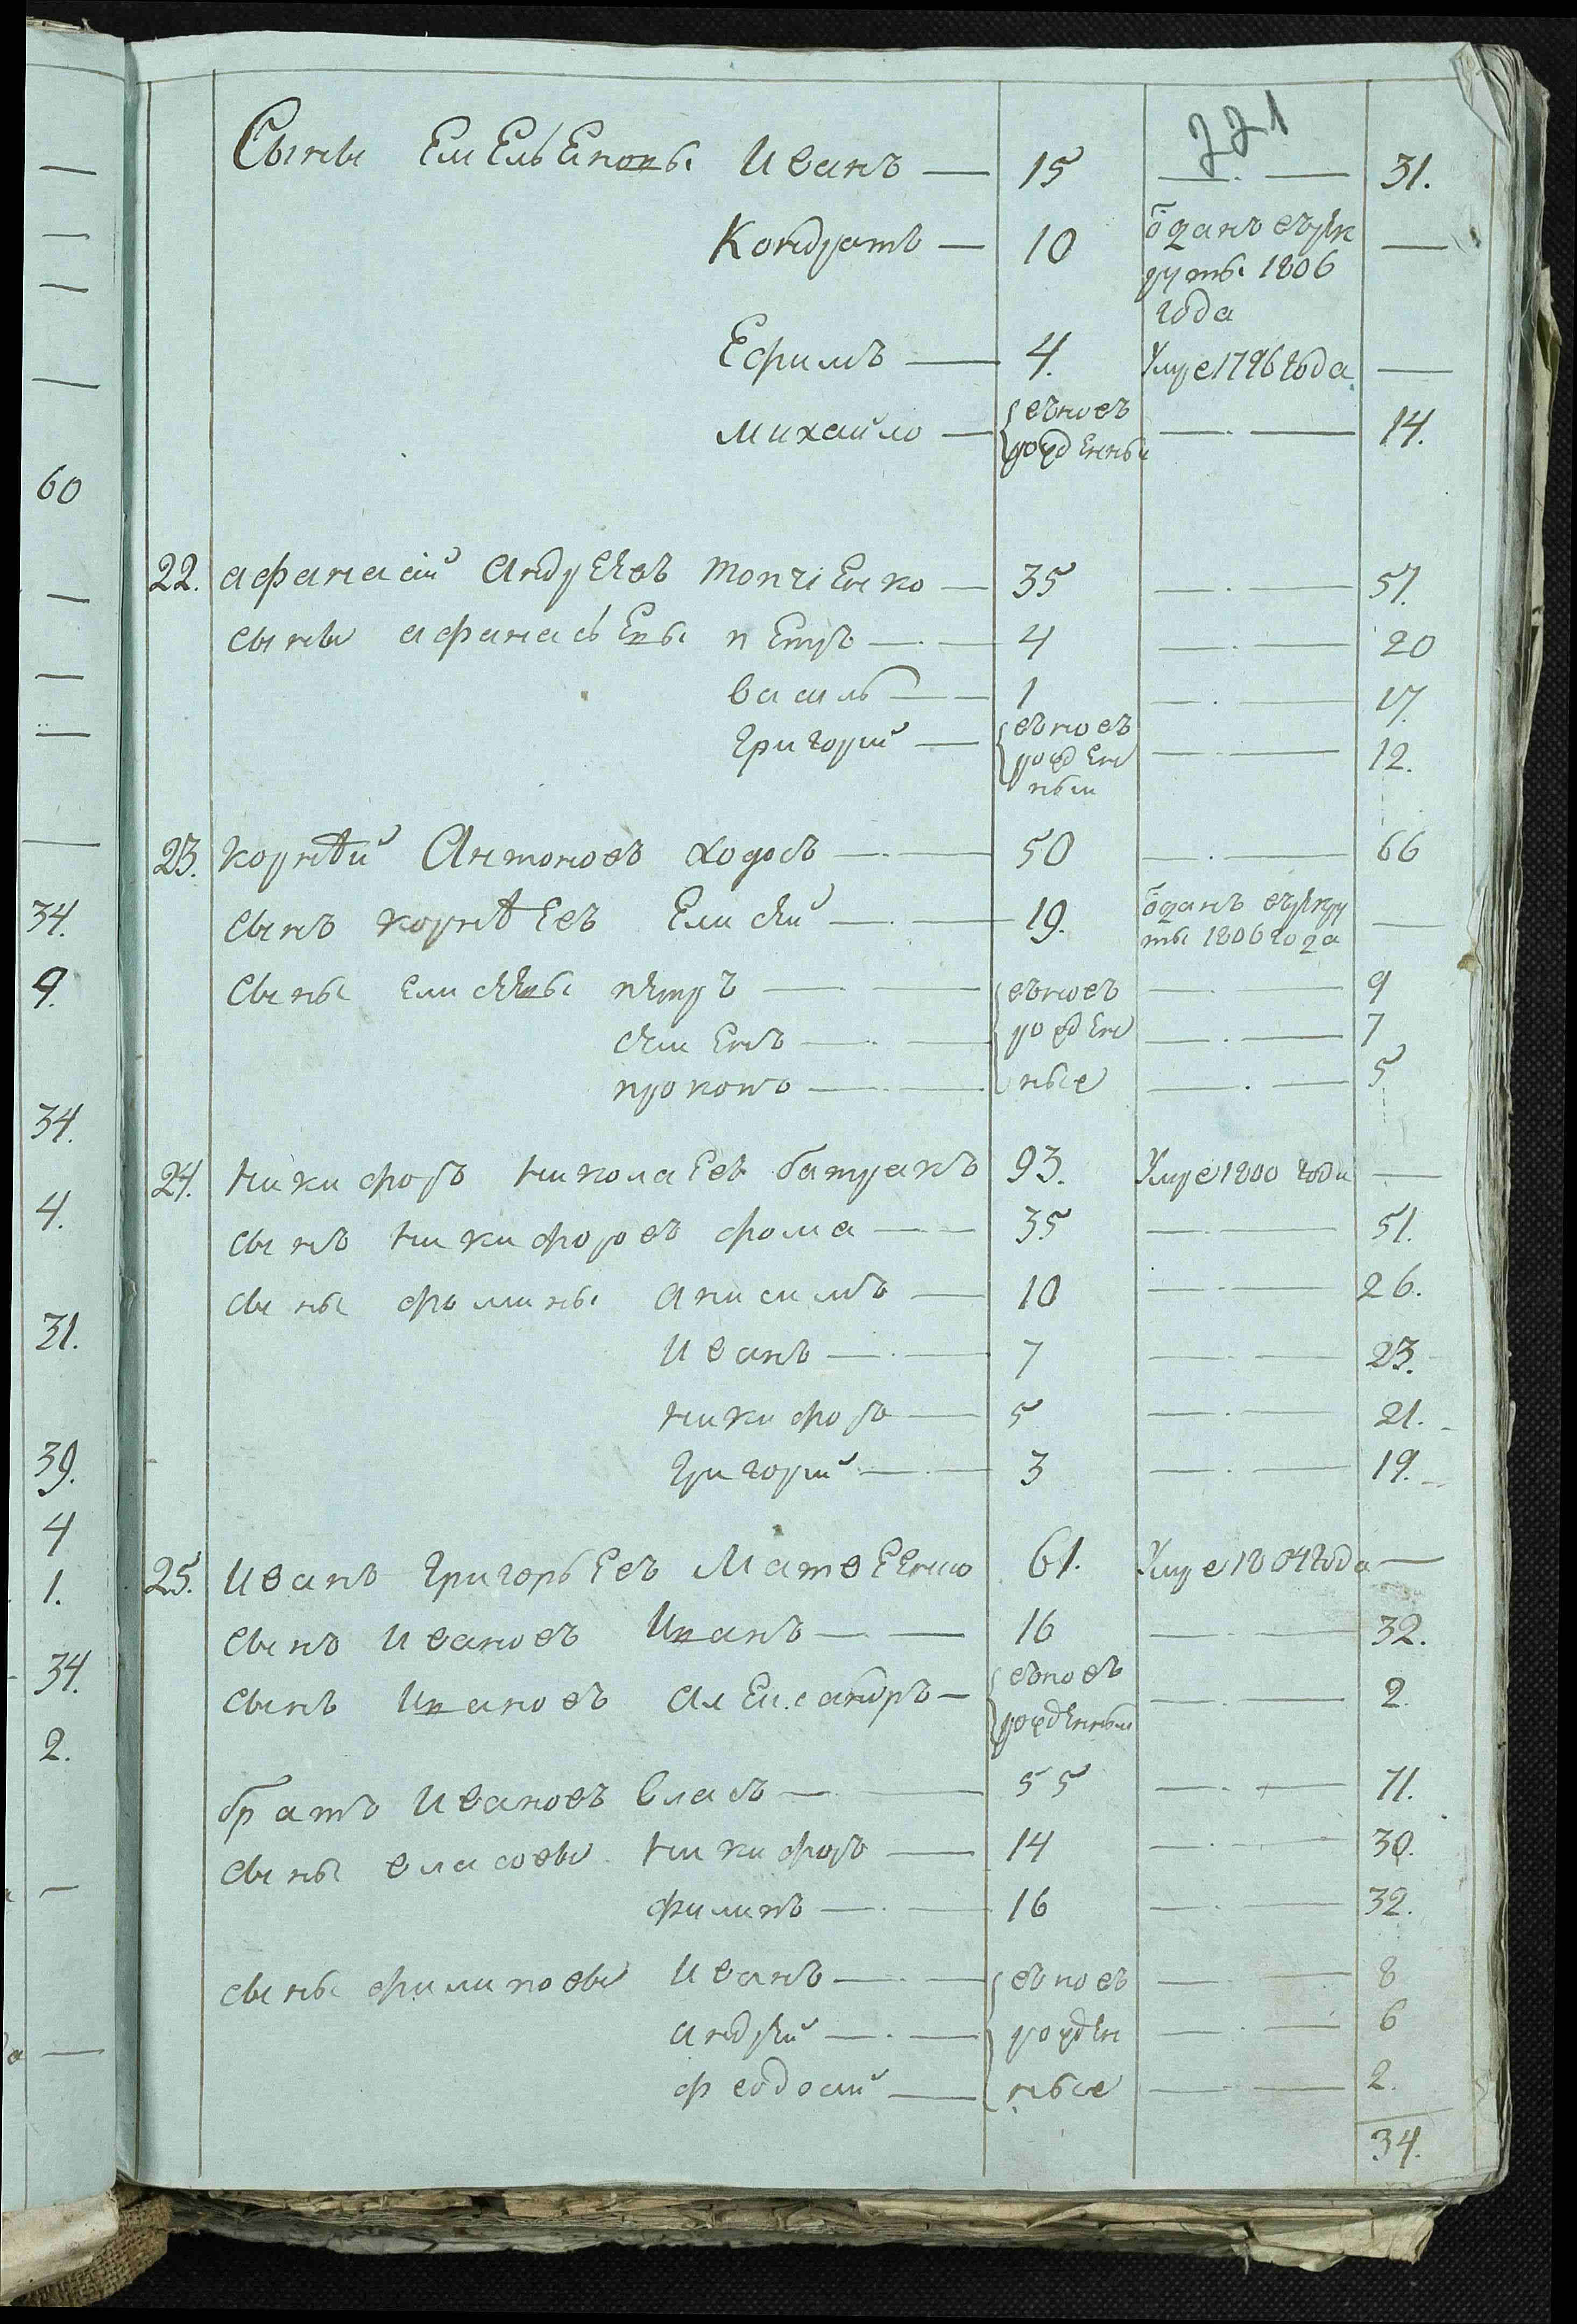 —
—
—
—
60
—
—
—
—
34.
9.
34.
4.
31.
39.
4
1.
34.
2.
—
—
221
Сыны Емельеновы Иванъ — 15 — 31.
Кондратъ — 10 óданъ въ рекруты 1806 года —
Ефимъ — 4. Умре 1796 года —
Михайло — вновь рожденный — 14.
22. афанасій Андреевъ топчиенко — 35 — 57.
сыны афанасьевы петръ — 4 — 20
василь — 1 — 17.
григорий — вновь рожденный — 12.
23. корнѣй Антоновъ ходосъ — 50 — 66
сынъ корнѣевъ Елисей — 19. óданъ въ рекруты 1806 года —
сыны елисеевы петръ — вновь рожденные — 9
семенъ — 7
прокопъ — 5
24. никифоръ николаевъ батракъ 93. Умре 1800 года —
сынъ никифоровъ фома — 35 — 51.
сыны фомины анисимъ — 10 — 26.
Иванъ — 7 — 23.
никифоръ — 5 — 21.
григорий — 3 — 19.
25. Иванъ григорьевъ Матвеенко 61. Умре 1804 года —
сынъ Ивановъ Иванъ — 16 — 32.
сынъ Ивановъ александръ — вновь рожденный — 2.
братъ Ивановъ власъ — 55 — 71.
сыны власовы никифоръ — 14 — 30.
филипъ — 16 — 32.
сыны филиповы Иванъ — вновь рожденные — 8
андрей — 6
феодосий — 2.
34.